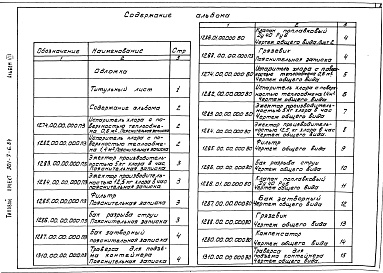 Содержание альбома
Обозначение Наименование Стр
1 2 3
Обложка
Титульный лист 1
Содержание альбома 2
1274.00.00.000 ПЗ Испаритель хлора с по-
верхностью теплообме-
на 0,8 м². Пояснительная записка
1282.00.00.000 ПЗ Испаритель хлора с по-
верхностью теплообме-
на
Пояснительная записка
1283.00.00.000 ПЗ Эжектор производитель-
ностью 5 кг хлора в час
Пояснительная записка
1284.00.00.000 ПЗ Эжектор производитель-
ностью 12,5 кг хлора в час
Пояснительная записка
1285.00.00.000 ПЗ Фильтр
Пояснительная записка 3
1286.00.00.000 ПЗ Бак разрыва струи
Пояснительная записка
1287.00.00.000 ПЗ Бак затворный
Пояснительная записка 4
Траверса для подъе-
ма контейнера
Пояснительная записка 4
1 2 3
1286.01.00.000 ВО Клапан поплавковый
Чертеж общего вида 4
Грязевик
Пояснительная записка 4
1274.00.00.000 ВО Испаритель хлора с повер-
хностью теплообмена 0,8 м²
Чертеж общего вида 5
1282.00.00.000 ВО Испаритель хлора с повер-
хностью теплообмена
Чертеж общего вида 6
1283.00.00.000 ВО Эжектор производитель-
ностью 5 кг хлора в час
Чертеж общего вида 7
1284.00.00.000 ВО Эжектор производитель-
ностью 12,5 кг хлора в час
Чертеж общего вида 8
1285.00.00.000 ВО Фильтр
Чертеж общего вида 9
1286.00.00.000 ВО Бак разрыва струи
Чертеж общего вида 10
1286.01.00.000 ВО Клапан поплавковый
Чертеж общего вида 11
1287.00.00.000 ВО Бак затворный
Чертеж общего вида 12
Грязевик
Чертеж общего вида 13
Компенсатор
Чертеж общего вида 14
Траверса для
подъема контейнера
Чертеж общего вида 15